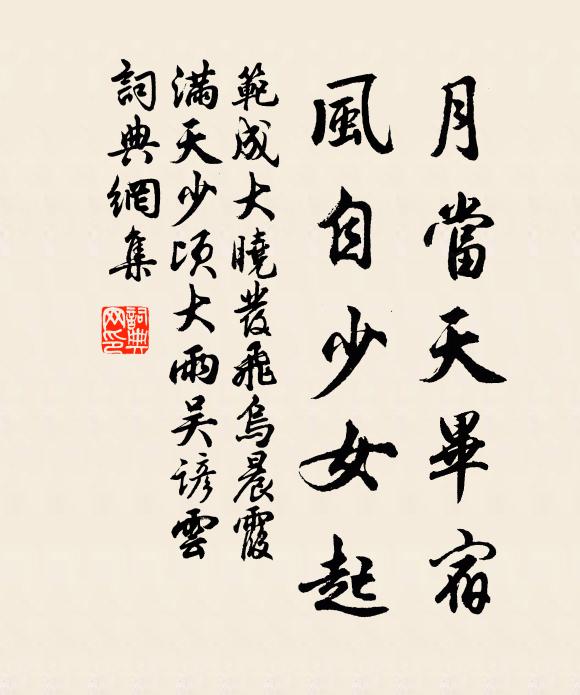 月當天畢宿
風自少女起
範成大曉發飛烏晨霞
滿天少頃大雨吴諺雲
詞典網集
詞典网印